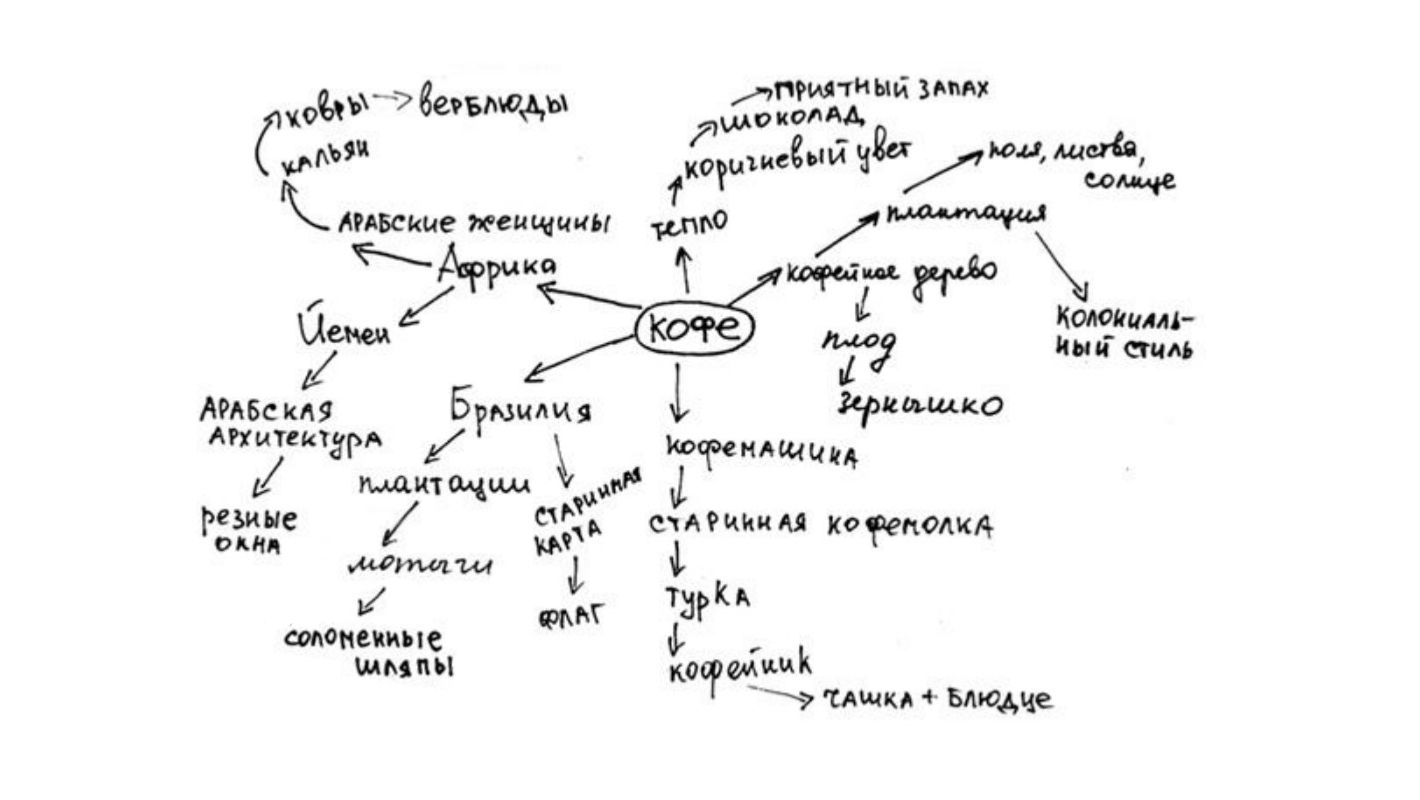 ПРИЯТНЫЙ ЗАПАХ
ковры
верблюды
шоколад
кальян
коричневый цвет
поля, листва,
солнце
плантация
АРАБСКИЕ женщины
тепло
Африка
кофейное дерево
Йемен
кофе
КОЛОНИАЛЬ-
НЫЙ СТИЛЬ
плод
зернышко
АРАБСКАЯ
АРХИТЕКТУРА
Бразилия
кофемашина
плантации
СТАРИННАЯ
КАРТА
резные
окна
СТАРИННАЯ КОФЕМОЛКА
мотыги
турка
ФЛАГ
соломенные
шляпы
кофейник
ЧАШКА + БЛЮДЦЕ